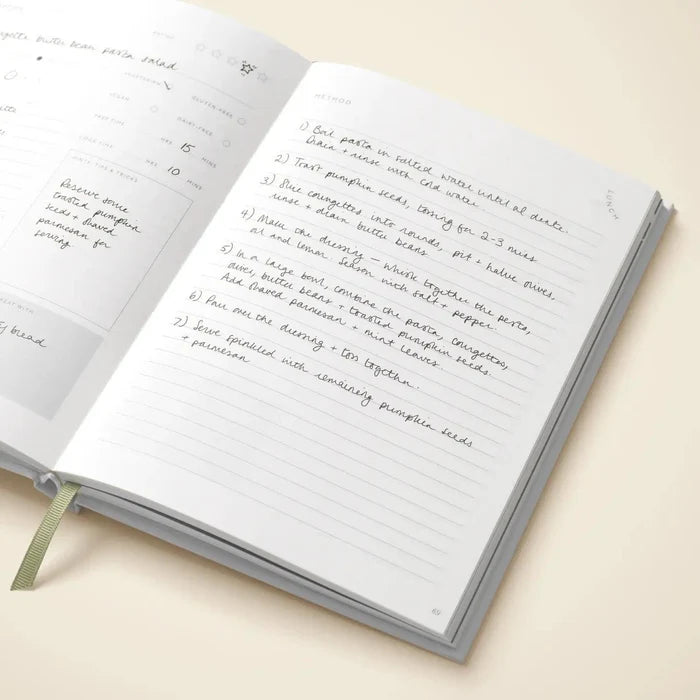 RATING
courgette butter bean pasta salad
VEGETARIAN
VEGAN
GLUTEN-FREE
DAIRY-FREE
PREP TIME HRS 15 MINS
COOK TIME HRS 10 MINS
NOTES, TIPS & TRICKS
Reserve some
toasted pumpkin
seeds + shaved
parmesan for
serving.
EAT WITH
bread
METHOD
LUNCH
1) Boil pasta in salted water until al dente.
Drain + rinse with cold water.
2) Toast pumpkin seeds, tossing for 2-3 mins
3) Slice courgettes into rounds, pit + halve olives,
rinse + drain butter beans
4) Make the dressing – whisk together the pesto,
oil and lemon. Season with salt + pepper.
5) In a large bowl, combine the pasta, courgettes,
olives, butter beans + toasted pumpkin seeds.
Add shaved parmesan + mint leaves.
6) Pour over the dressing + toss together.
7) Serve sprinkled with remaining pumpkin seeds
+ parmesan
69